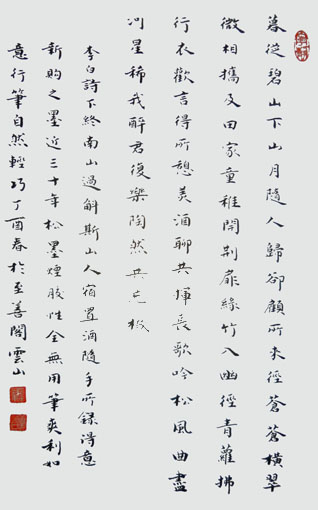 暮從碧山下山月隨人歸卻顧所來徑蒼蒼橫翠
微相攜及田家童稚開荆扉綠竹入幽徑青蘿拂
行衣歡言得所憩美酒聊共揮長歌吟松風曲盡
河星稀我醉君復樂陶然共忘机
李白詩下終南山過斛斯山人宿置酒隨手所錄得意
新购之墨近三十年松墨煙膠性全無用筆爽利如
意行筆自然輕巧丁酉春於至善閣雲山